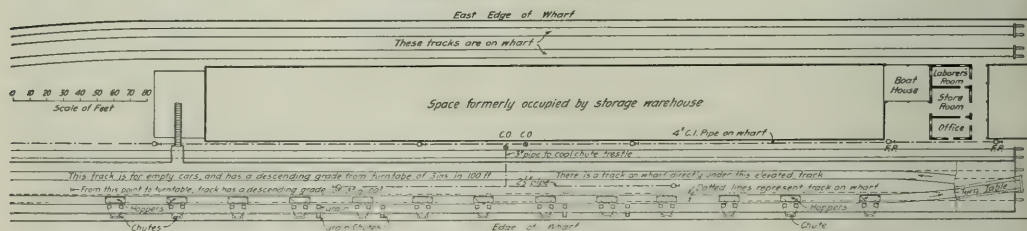 East Edge of Wharf
These tracks are on wharf
0 10 20 30 40 50 60 70 80
Scale of Feet
Space formerly occupied by storage warehouse
Boat House
Laborers Room
Store Room
Office
C.O C.O
4" C.I. Pipe on wharf
3" pipe to coal chute trestle
This track is for empty cars, and has a descending grade from turntable of 3 ins in 100 ft
There is a track on wharf directly under this elevated track
From this point to turntable, track has a descending grade
2½" pipe
Dotted lines represent track on wharf
Turn Table
Hoppers
Hoppers
Chutes
Drain Chutes
Edge of Wharf
Chute